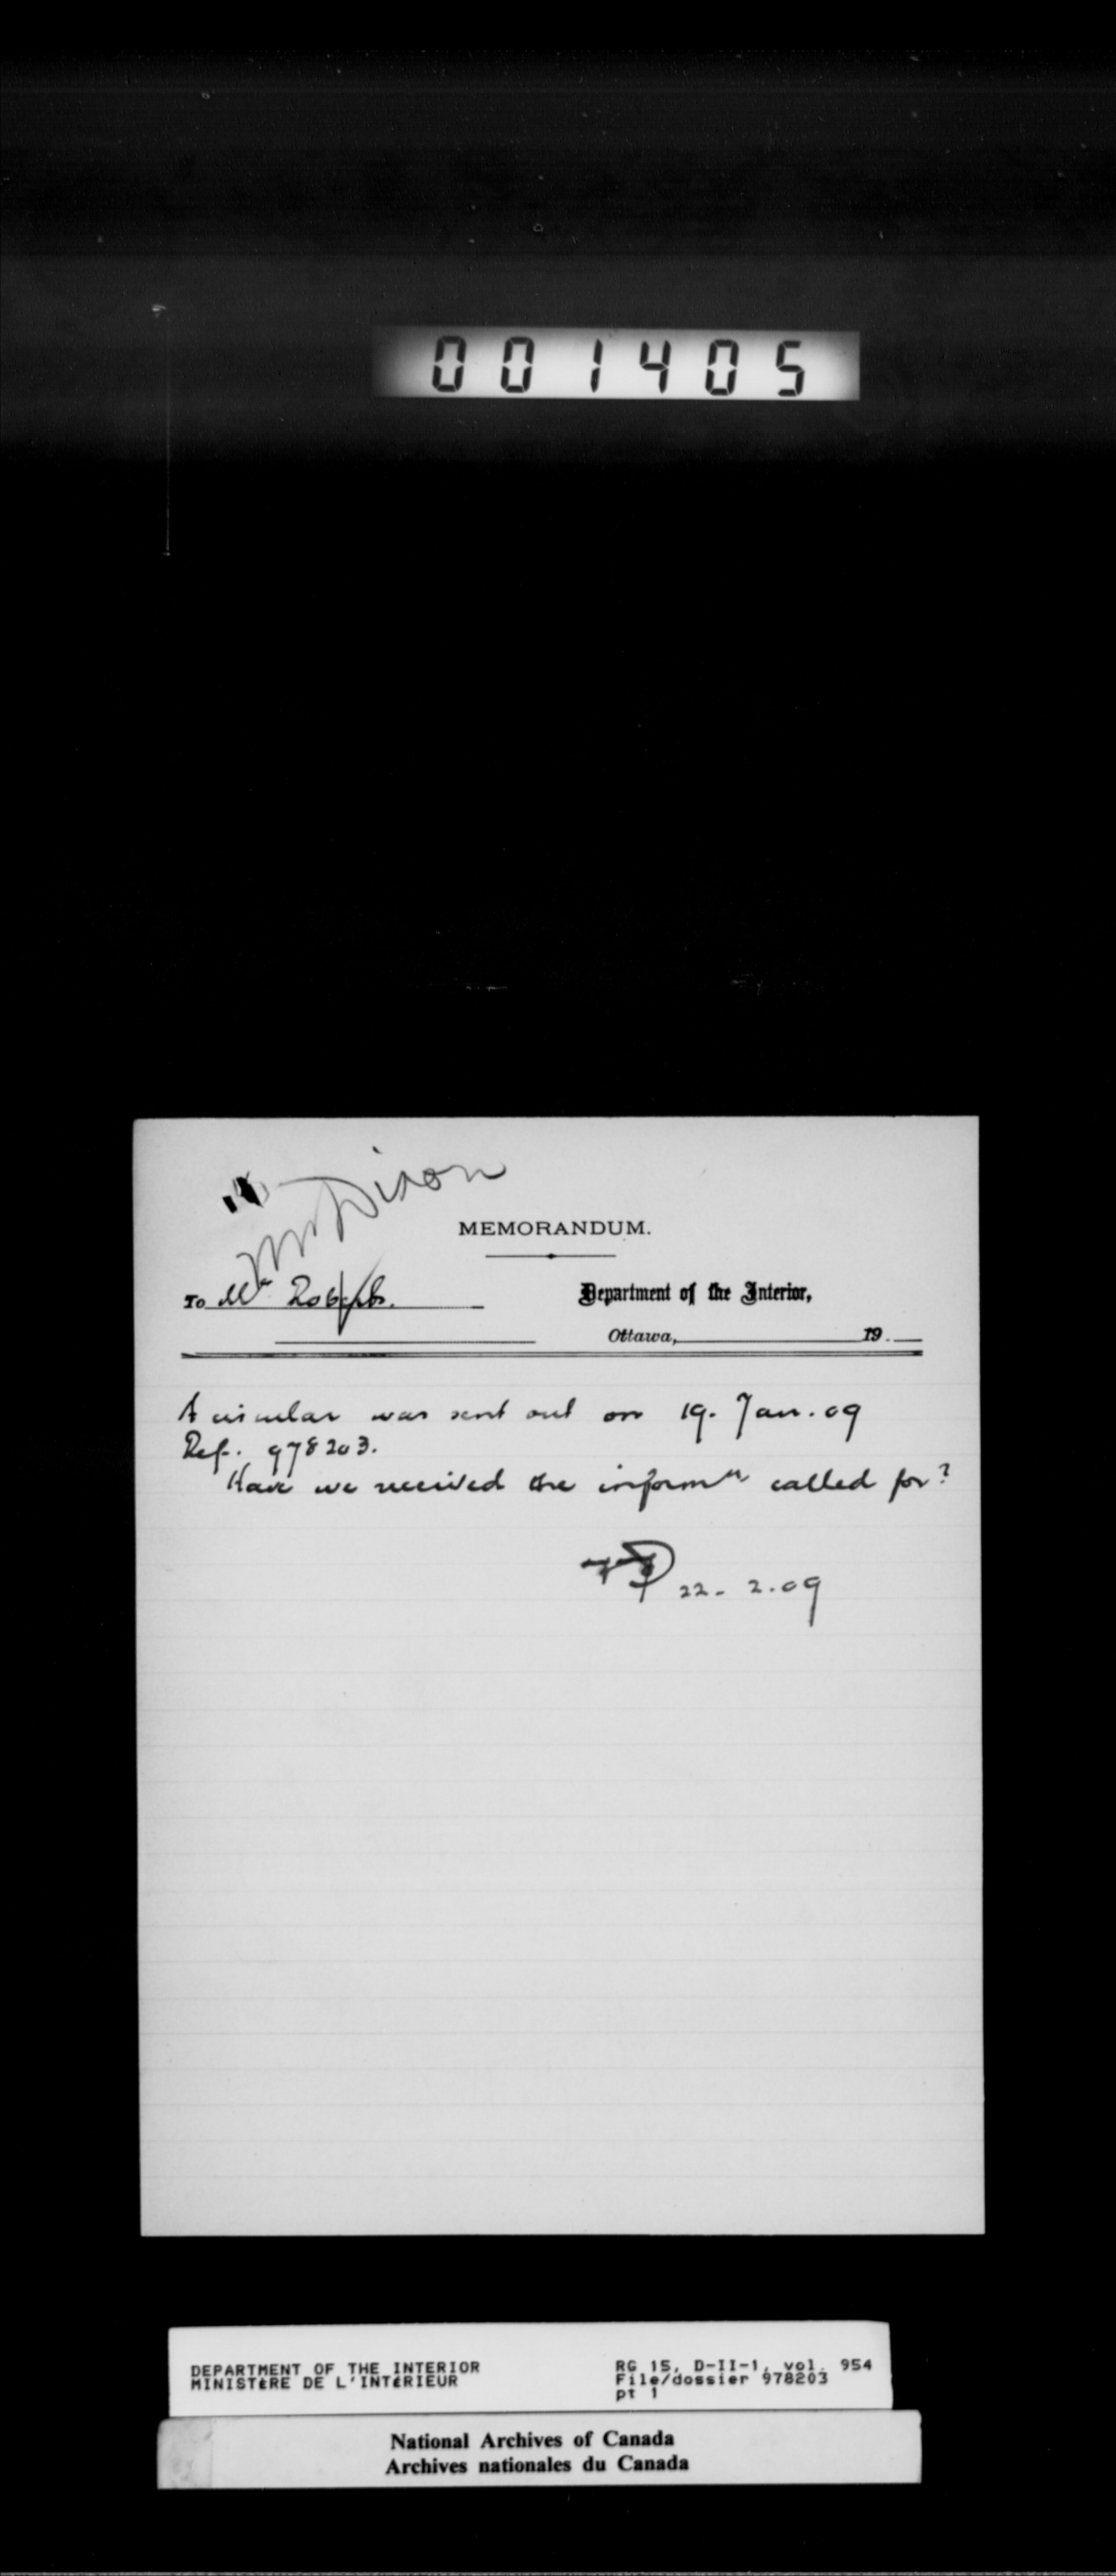 001405
Mr Dixon
MEMORANDUM.
To Mr Roberts.
Department of the Interior,
Ottawa, 19
A circular was sent out on 19. Jan. 09
Ref. 978203.
Have we received the informn called for?
22. 2. 09
DEPARTMENT OF THE INTERIOR
MINISTÈRE DE L'INTÉRIEUR
RG 15, D-II-1, vol. 954
File/dossier 978203
pt 1
National Archives of Canada
Archives nationales du Canada